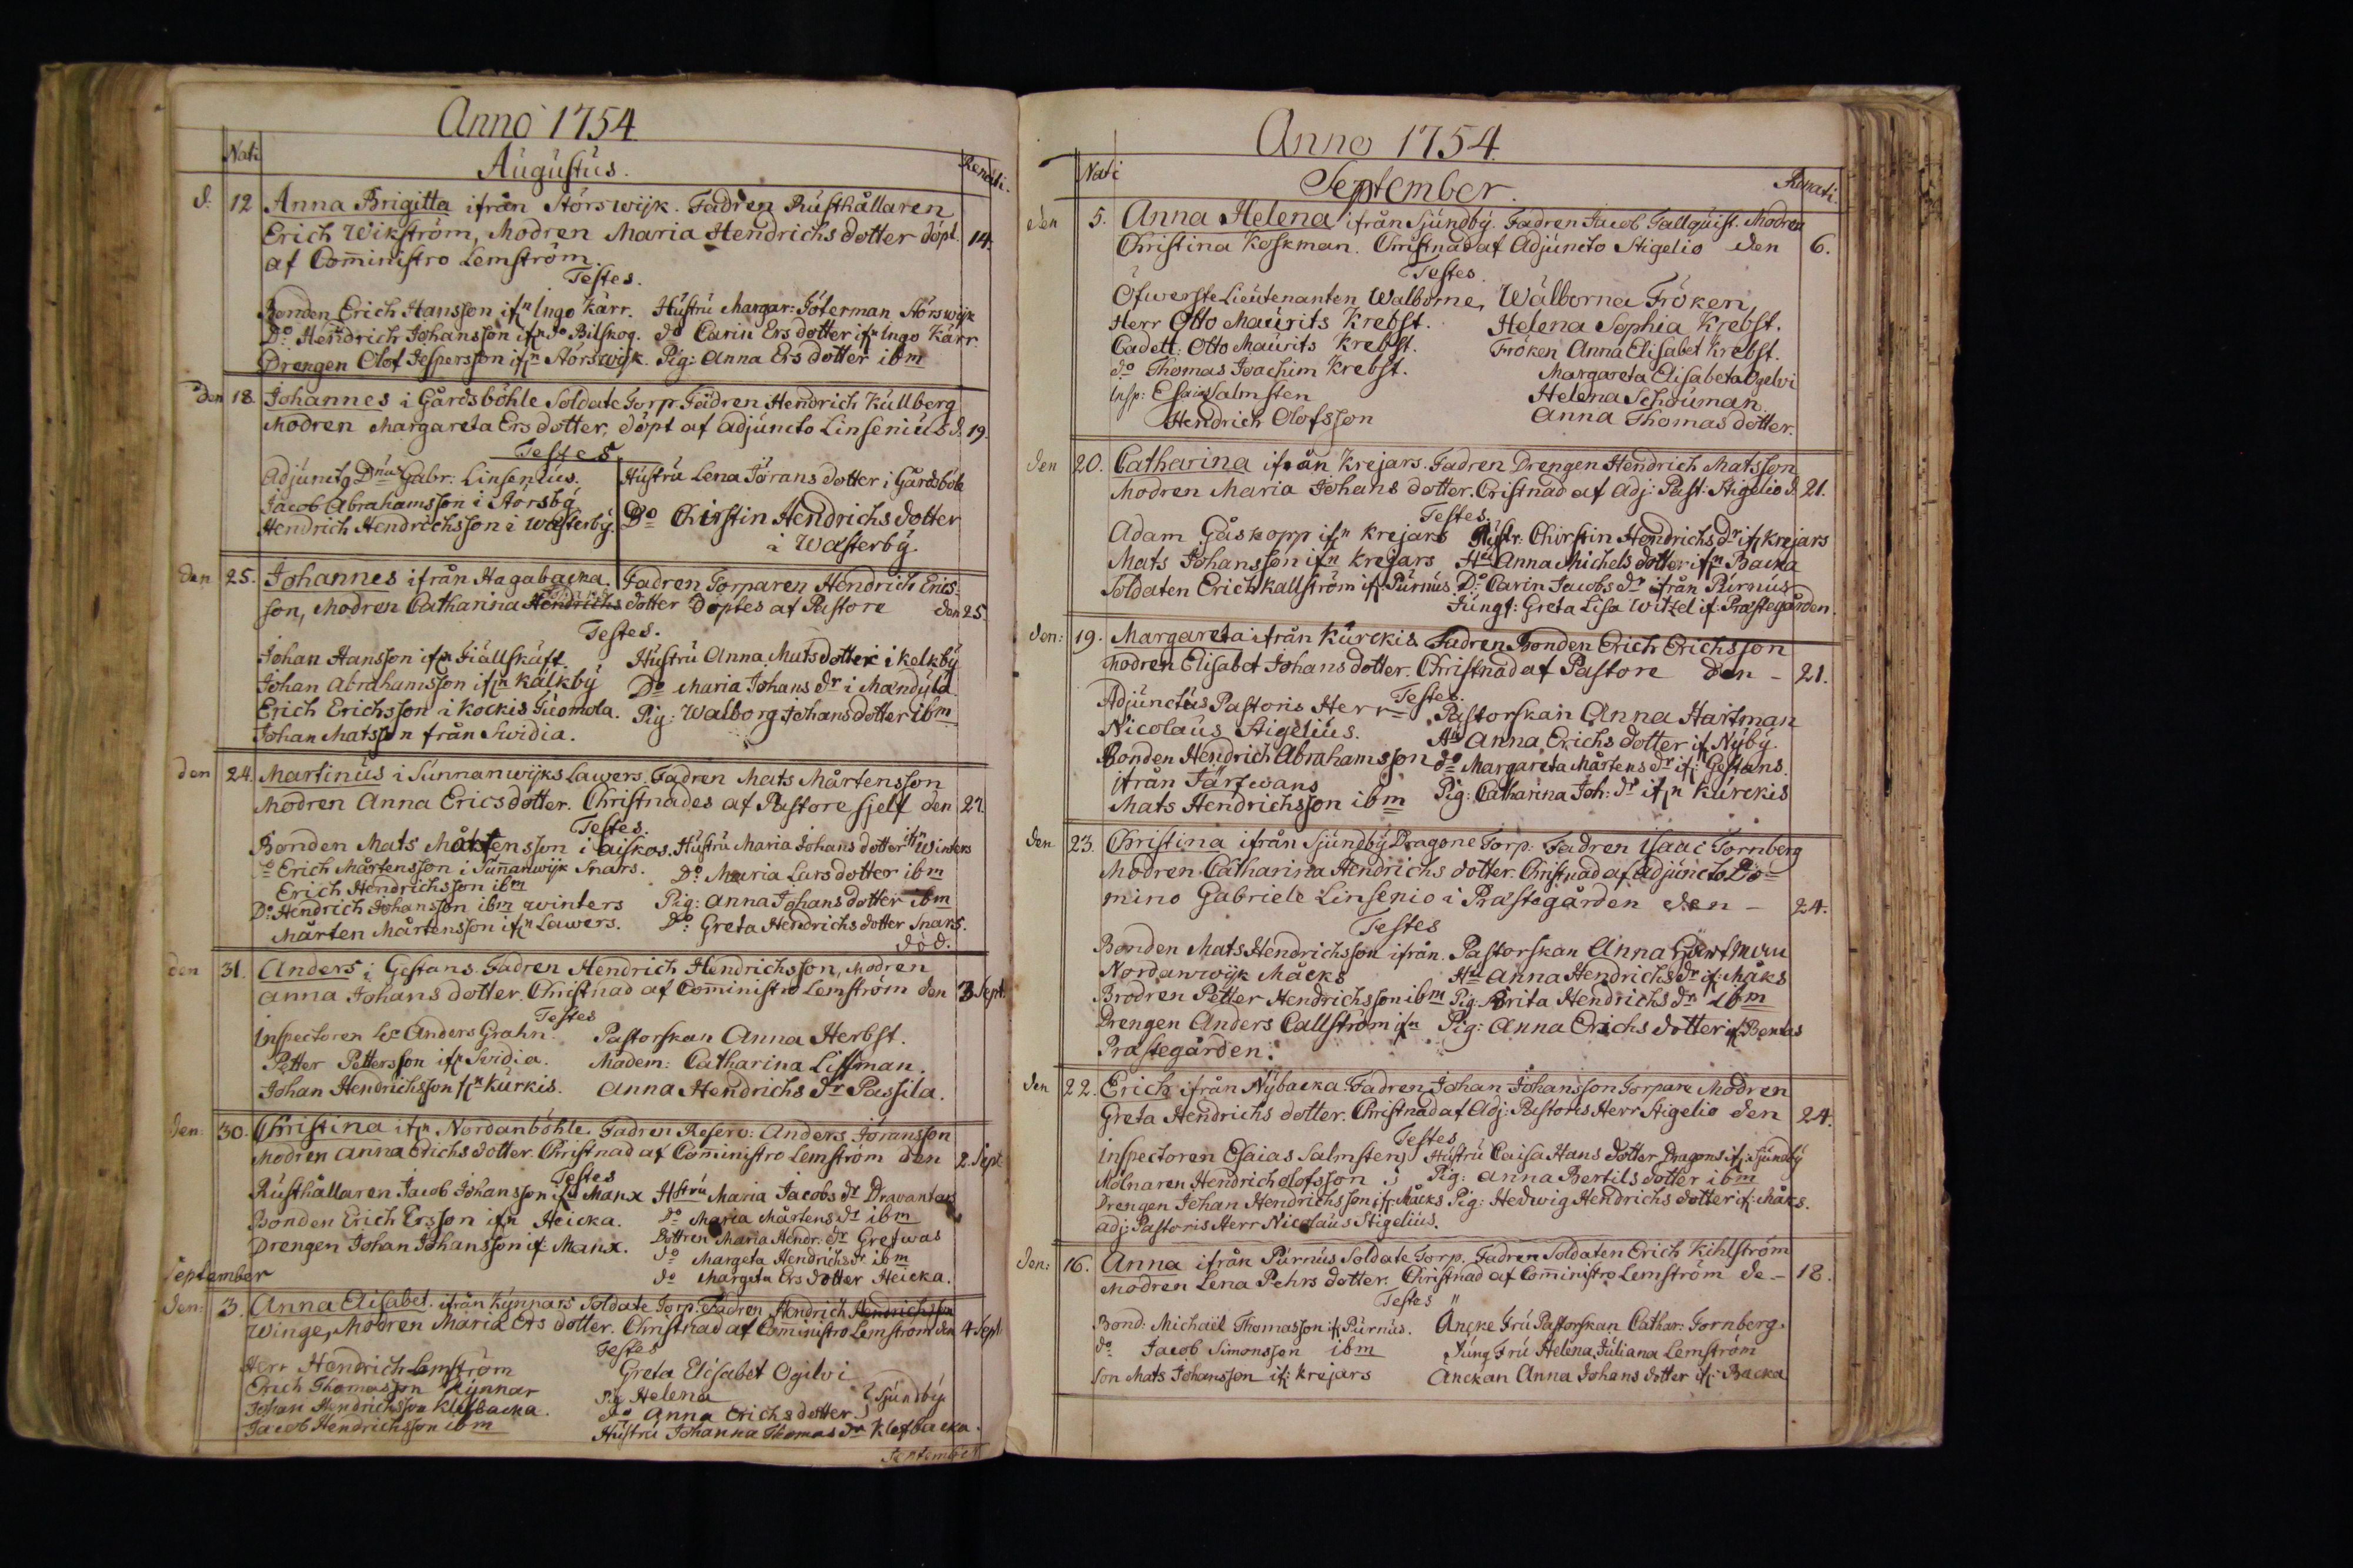 Anno 1754
Nati
Augustus.
Renati.
d. 12 Anna Brigitta ifrån Störswijk. Fadren Rusthållaren
Erich Wikström, Modren Maria Hendrichs dotter döpt. 14.
af Com̄inistro Lemström.
Testes.
Bonden Erich Hansson ifn Ingo Kärr. Hustru Margar: Jöterman Störswijk
Do Hendrich Johansson ifn do Bilskog. do Carin Ers dotter ifn Ingo Kärr.
Drengen Olof Jespersson ifn Störswijk. Pig: Anna Ers dotter ibm
den 18. Johannes i Gårdsböhle Soldate Torp. Fadren Hendrich Kullberg
Modren Margareta Ers dotter, döpt af Adjuncto Linsenius d. 19.
Testes
Adjunctg Dnus Gabr: Linsenius. Hustru Lena Jörans dotter i Gårdsböle
Jacob Abrahamsson i Storsby
Hendrich Hendrichsson i Wästerby. Do Chirstin Hendrichs dotter
i Wästerby
den 25. Johannes ifrån Hagabacka. Fadren Torparen Hendrich Erics-
son, Modren Catharina Hendrichs dotter döptes af Pastore den 25.
Testes.
Johan Hansson ifn Fiällskäft. Hustru Anna Mats dotter i Kelkby
Johan Abrahamsson ifn Kälkby Do Maria Johans dr i Mandyla
Erich Erichsson i Kockis Tuomola. Pig: Walborg Johans dotter ibm
Johan Matsson från Swidia.
den 24. Martinus i Sunnanwijks Lawers. Fadren Mats Mårtensson
Modren Anna Erics dotter. Christnades af Pastore sjelf den 27.
Testes.
Bonden Mats Mårtensson i Aiskos. Hustru Maria Johans dotter ifn Winters
do Erich Mårtensson i Sun̄anwijk Snars. Do Maria Lars dotter ibm
Erich Hendrichsson ibm
Do Hendrich Johansson ibm winters Pig: Anna Johans dotter ibm
Mårten Mårtensson ifn Lawers. Do Greta Hendrichs dotter Snars.
död.
den 31. Anders i Gestans. Fadren Hendrich Hendrichsson, Modren
Anna Johans dotter. Christnad af Com̄inistro Lemström den 3 Sept.
Testes
Inspectoren Anders Grahn. Pastorskan Anna Herbst.
Petter Pettersson ifn Svidia. Madem: Catharina Littman.
Johan Hendrichsson fn Kurkis. Anna Hendrichs dr Passila.
den: 30. Christina ifn Nordanböhle. Fadren Reserv: Anders Jöransson
Modren Anna Erichs dotter. Christnad af Com̄inistro Lemström den 2 Sept
Testes
Rusthållaren Jacob Johansson ifn Manx Hstru Maria Jacobs dr Dravantars
Bonden Erich Ersson ifn Heicka. Do Maria Mårtens dr ibm
Drengen Johan Johansson if: Manx. Dottren Maria Hendr: dr Grefwas
do Margeta Hendrichs dr ibm
do Margeta Ers dotter Heicka.
September
den: 3. Anna Elisabet. ifrån Kynnars Soldate Torp. Fadren Hendrich Hendrichsson
Winge, Modren Maria Ers dotter. Christnad af Com̄inistro Lemström den 4 Sept
Testes
Herr Hendrich Lemström Greta Elisabet Ogilvi
Erich Thomasson Kynnar Pig Helena
Johan Hendrichsson Klefbacka. do Anna Erichs dotter } Sjundby.
Jacob Hendrichsson ibm Hustru Johanna Thomas dr Klefbacka.
September
Anno 1754
Nati
September.
Renati.
den 5. Anna Helena ifrån Sjundby. Fadren Jacob Fallquist. Modren
Christina Koskman. Christnad af Adjuncto Stigelio den 6.
Testes.
Öfwerste Lieutenanten Walborne, Wälborna Fröken
Herr Otto Maurits Krebst. Helena Sophia Krebst.
Cadett: Otto Maurits Krebst. Fröken Anna Elisabet Krebst.
do Thomas Joachim Krebst. Margareta Elisabeta Ogelvi
Insp: Esaias Salmsten Helena Schouman
Hendrich Olofsson Anna Thomas dotter.
den 20. Catharina ifrån Krejars. Fadren Drengen Hendrich Matsson
Modren Maria Johans dotter. Cristnad af Adj: Past: Stigelio d. 21.
Testes.
Adam Gåskopp ifn Krejars Hustr: Chirstin Hendrichs dr if Krejars
Mats Johansson ifn Krejars Hu Anna Michels dotter ifn Backa
Soldaten Erich Kallström if: Purnus. Do Carin Jacobs dr ifrån Purnus
Jungf: Greta Lisa Witzel if: Prästegården.
den: 19. Margareta ifrån Kurckis Fadren Bonden Erich Erichsson
Modren Elisabet Johans dotter. Christnad af Pastore den - 21.
Testes.
Adjunctus Pastoris Herr Pastorskan Anna Hartman
Nicolaus Stigelius. Hu Anna Erichs dotter if Nyby.
Bonden Hendrich Abrahamsson do Margareta Mårtens dr if: Gestans.
ifrån Tärfwans Pig: Catharina Joh: dr ifn Kurckis
Mats Hendrichsson ibm
den 23. Christina ifrån Sjundby Dragone Torp: Fadren Isaac Tornberg
Modren Catharina Hendrichs dotter. Christnad af Adjuncto Do-
mino Gabriele Linsenio i Prästegården den - 24.
Testes
Bonden Mats Hendrichsson ifrån. Pastorskan Anna Hartman
Nordanwijk Mäcks Hu Anna Hendrichs dr if: Måks
Brodren Petter Hendrichsson ibm Pig: Brita Hendrichs dr ibm
Drengen Anders Callström ifn Pig: Anna Erichs dotter if Bentas
Prästegården.
den 22. Erich ifrån Nybacka Fadren Johan Johansson Torpare Modren
Greta Hendrichs dotter. Christnad af Adj: Pastoris Herr Stigelio den 24.
Testes
Inspectoren Esaias Salmsten, Hustru Caisa Hans dotter Dragons if: Sjundby
Mölnaren Hendrich olofsson Pig: Anna Bertils dotter ibm
Drengen Johan Hendrichsson if: Måcks Pig: Hedwig Hendrichs dotter if: Måks.
adj: Pastoris Herr Nicolaus Stigelius.
den: 16. Anna ifrån Purnus Soldate Torp. Fadren Soldaten Erich Kihlström
Modren Lena Pehrs dotter. Christnad af Com̄inistro Lemström de- 18.
Testes
Bond: Michaël Thomasson if: Purnus. Ancke Fru Pastorskan Cathar: Tornberg.
do Jacob Simonsson ibm Jung Fru Helena Juliana Lemström
Son Mats Johansson if: Krejars Änckan Anna Johans dotter if: Backa